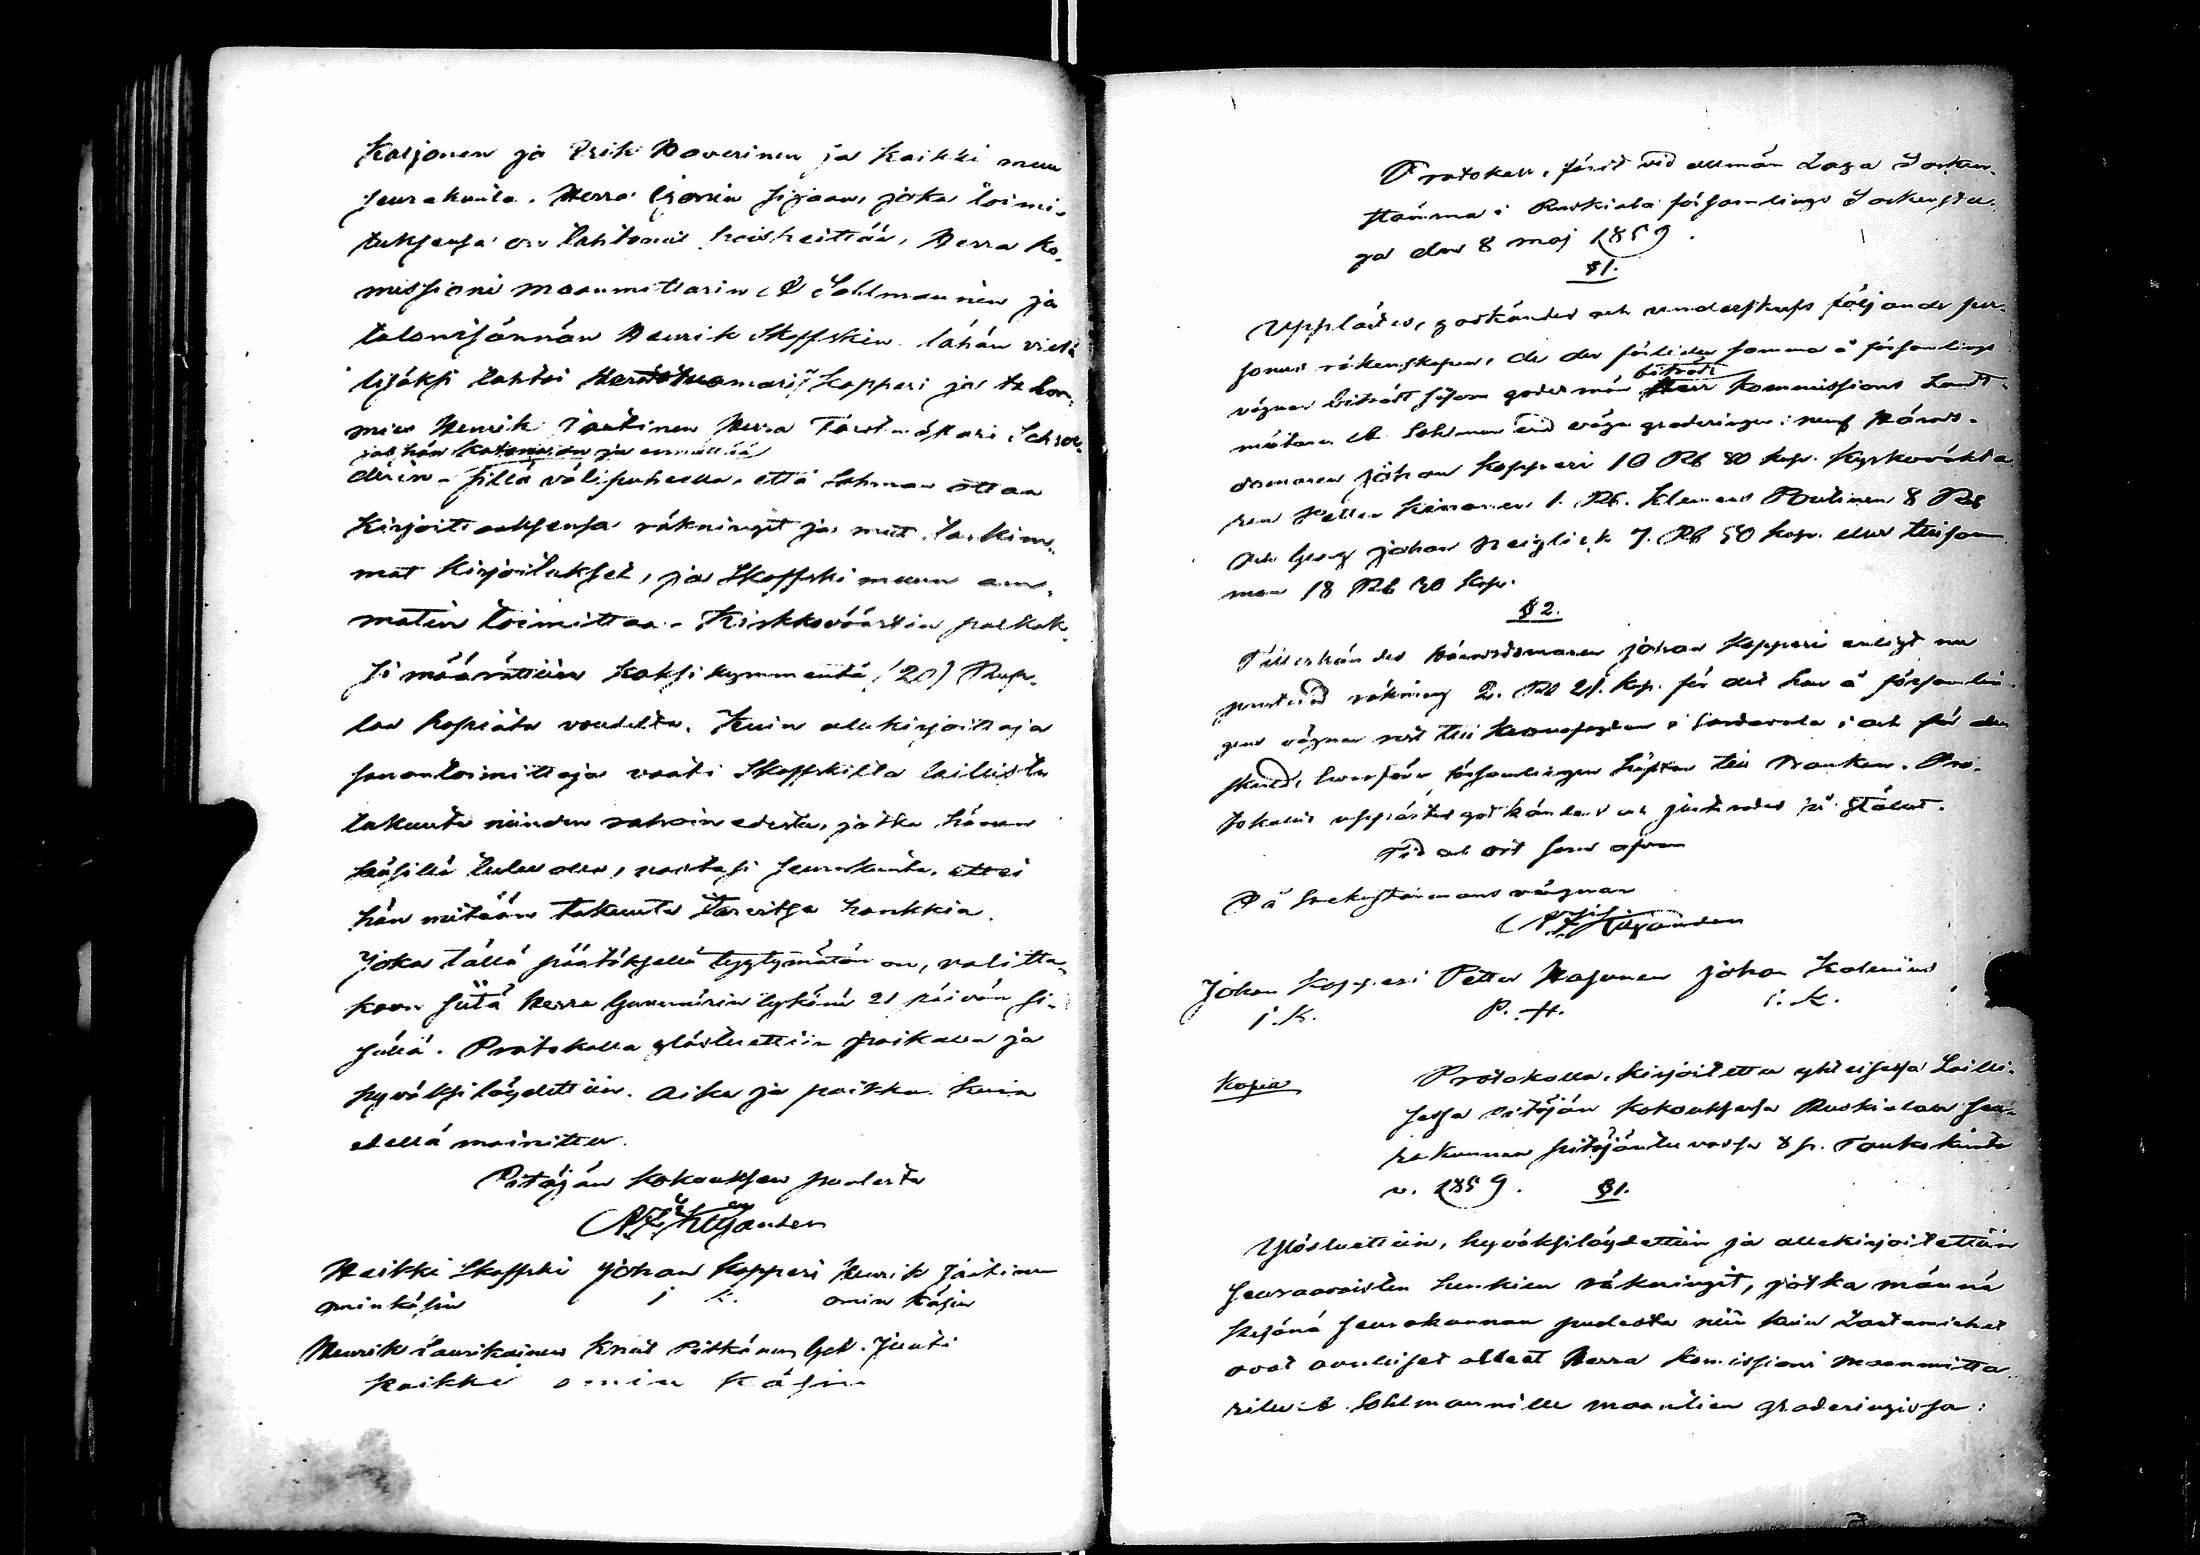 Karjonen ja Erik Haverinen ja kaikki muu
seurakunta. Herra Ignin sijaan, joka toimi-
tuksensa on tahtonut poisheittää, Herra Ko-
missioni maanmittarin A Sohlmannin ja
talonisännän Henrik Skoffskin. tähän vielä
lisäksi tahtoi Kopperi ja talon
mies Henrik Jäntinen Herra
jos hän katonsidn ja
sillä välipuheella, että Sohman ottaa
kirjoittaaksensa räkningit ja muut tarkim-
mat kirjoitukset, ja Skoffski muun am-
matin toimittaa. Kirkkoväärtin palkak-
si määrättiin kaksikymmentä (20) Rup-
laa hopiata vuodelta. Kuin allekirjoittaja
sanantoimittaja vaati Skoffskilta laillista
takuuta niinden rahain edestä, jotka hänen
käsillä tulee olla, vastasi seurakunta, ettei
hän mitään takuuta tarvitse hankkia.
Joka tällä päätöksellä tyytymätön on, valitta-
koon siitä Herra Guvernörin tykönä 21 päivän si-
sällä. Protokolla ylösluettiin paikalla ja
hyväksilöydettiin. Aika ja paikka kuin
edellä mainittu.
Pitäjän kokouksen puolesta
Heikki Skoffski Johan Kopperi Henrik Jäntinen
omin käsin J K. omin käsin
Henrik Laurikainen Knut Pitkänen Gab. Juuti
kaikki omin käsin
Protokoll, fördt vid allmän Laga Socken-
stämma i Ruskiala församlings Sockenstu-
ga den 8 maj 1859.
§ 1.
Upplästes, godkändes och underskrefs följande per-
soners räkenskaper, de der förliden sommar å församlings
biträdt
vägnar biträdt såsom godemän Herr Kommissions Landt-
mätaren A. Sohlman vid vägagraderingen: nemf Härads-
domaren Johan Kopperi 10 Rb 80 kop. Kyrkovärda
ren Petter Kinnanen 1. Rb. Klemens Poutinen 8 Rb
och Georg Johan Neiglick 7. Rb 50 kop. eller tillsam
man 18 Rb 30 kop.
§ 2.
Tillerkändes Häradsdomaren Johan Kopperi enligt nu
räkning 2. Rb 21. kop. för det han å församlin-
gens vägnar rest till Kronofogden i Sordavala i och för den
skuld, hvarföre församlingen häftar till Banken. Pro-
tokollet upplästes godkändes och justerades på stället.
Tid och ort som ofvan
På Sockenstämmans vägnar
Johan Kopperi Petter Hasunen Johan Kolenius
J. K. P. H. J. K.
Kopia Protokolla, kirjoitettu yhteisessä Lailli-
sessa Pitäjän kokouksessa Ruskialan Seu-
rakunnan pitäjäntuvassa 8 p. Toukokuuta
v. 1859. § 1.
Ylösluettiin, hyväksilöydettiin ja allekirjoitettiin
seuraavaisten henkien räkningit, jotka männä
kesänä seurakunnan puolesta niin kuin Lautamiehet
ovat avuliset olleet Herra Komissioni Maanmitta-
rille A. Sohlmannille maantien graderingissa: